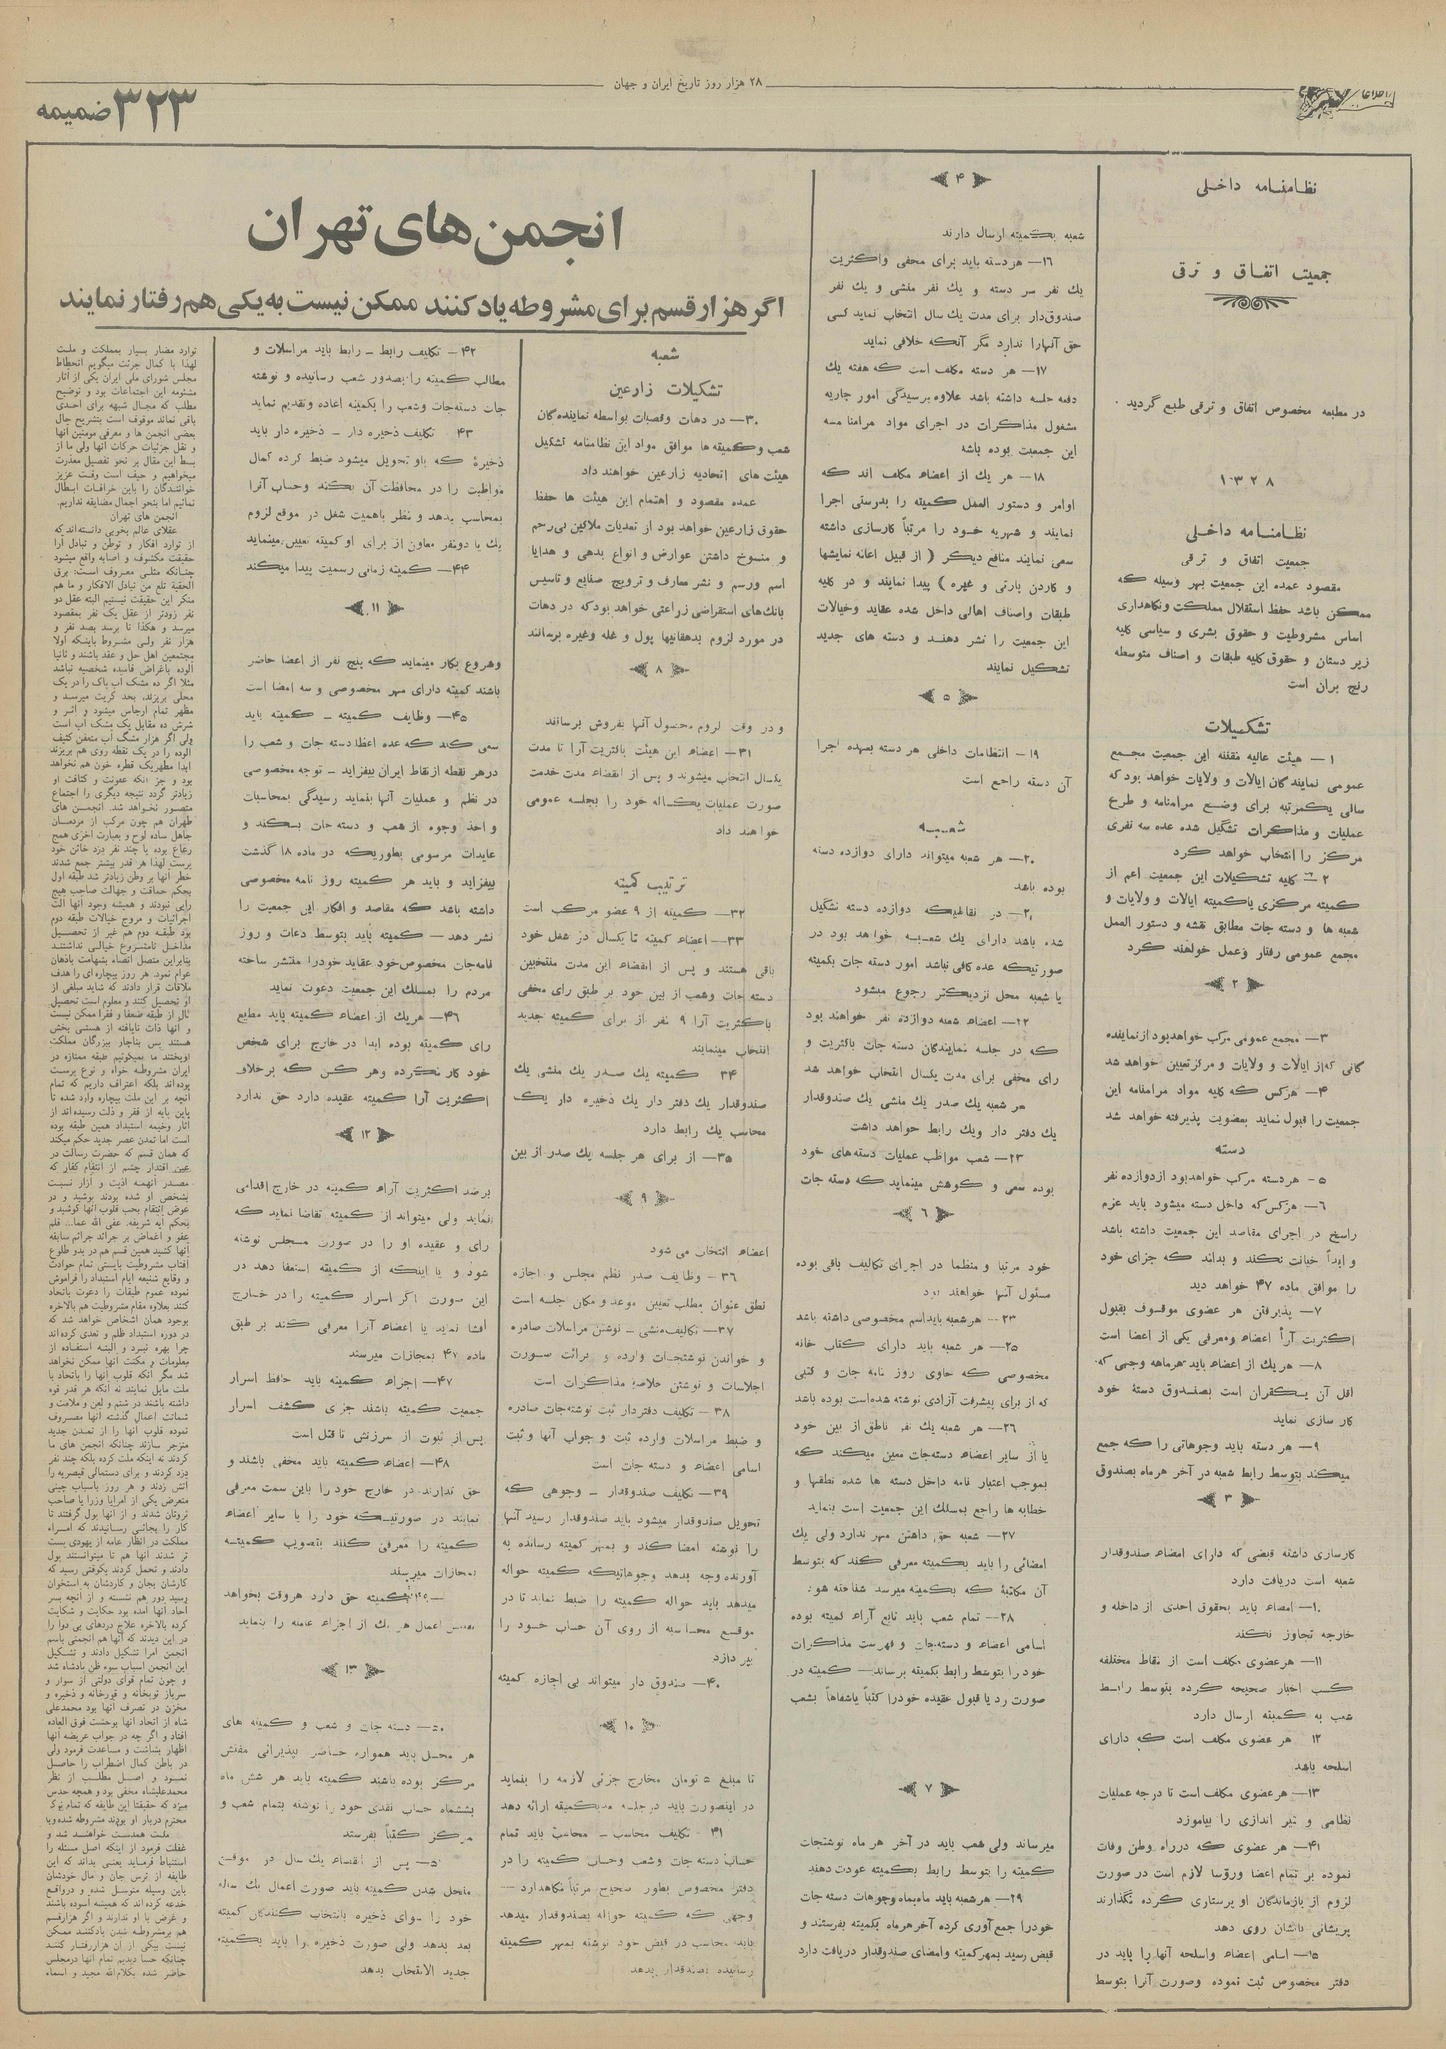 ۲۸ هزار روز تاریخ ایران و جهان
ضمیمه ۳۲۳
اطلاعات
انجمن‌های تهران
اگر هزار قسم برای مشروطه یاد کنند ممکن نیست به یکی هم رفتار نمایند
نظامنامه داخلی
جمعیت اتفاق و ترقی
در مطبعه مخصوص اتفاق و ترقی طبع گردید .
۱۳۲۸
نظامنامه داخلی
جمعیت اتفاق و ترقی
مقصود عمده این جمعیت بهر وسیله که
ممکن باشد حفظ استقلال مملکت و نگاهداری
اساس مشروطیت و حقوق بشری و سیاسی کلیه
زیر دستان و حقوق کلیه طبقات و اصناف متوسطه
رنج بران است
تشکیلات
۱ — هیئت عالیه مقننه این جمعیت مجمع
عمومی نمایندگان ایالات و ولایات خواهد بود که
سالی یکمرتبه برای وضع مرامنامه و طرح
عملیات و مذاکرات تشکیل شده عده سه نفری
مرکز را انتخاب خواهد کرد
۲ — کلیه تشکیلات این جمعیت اعم از
کمیته مرکزی یا کمیته ایالات و ولایات و
شعبه ها و دسته جات مطابق نقشه و دستور العمل
مجمع عمومی رفتار و عمل خواهند کرد
۲
۳— مجمع عمومی مرکب خواهد بود از نماینده
گانی که از ایالات و ولایات و مرکز تعیین خواهد شد
۴— هرکس که کلیه مواد مرامنامه این
جمعیت را قبول نماید بعضویت پذیرفته خواهد شد
دسته
۵- هر دسته مرکب خواهد بود از دوازده نفر
۶— هرکس که داخل دسته میشود باید عزم
راسخ در اجرای مقاصد این جمعیت داشته باشد
و ابداً خیانت نکند و بداند که جزای خود
را موافق ماده ۴۷ خواهد دید
۷— پذیرفتن هر عضوی موقوف بقبول
اکثریت آراء اعضاء و معرفی یکی از اعضا است
۸— هر یک از اعضاء باید هر ماهه وجهی که
اقل آن یکقران است بصندوق دستهٔ خود
کار سازی نماید
۹— هر دسته باید وجوهاتی را که جمع
میکند بتوسط رابط شعبه در آخر هر ماه بصندوق
۳
کارسازی داشته قبضی که دارای امضاء صندوقدار
شعبه است دریافت دارد
۱۰— اعضاء باید بحقوق احدی از داخله و
خارجه تجاوز نکند
۱۱— هر عضوی مکلف است از نقاط مختلفه
کسب اخبار صحیحه کرده بتوسط رابط
شعب به کمیته ارسال دارد
۱۲ هر عضوی مکلف است که دارای
اسلحه باشد
۱۳— هر عضوی مکلف است تا درجه عملیات
نظامی و تیر اندازی را بیاموزد
۱۴— هر عضوی که در راه وطن وفات
نموده بر تمام اعضا و رؤسا لازم است در صورت
لزوم از بازماندگان او پرستاری کرده نگذارند
پریشانی بایشان روی دهد
۱۵— اسامی اعضاء و اسلحه آنها را باید در
دفتر مخصوص ثبت نموده وصورت آنرا بتوسط
۴
شعبه بکمیته ارسال دارند
۱۶— هر دسته باید برای مخفی واکثریت
یک نفر سر دسته و یک نفر منشی و یک نفر
صندوق‌دار برای مدت یک سال انتخاب نماید کسی
حق آنها را ندارد مگر آنکه خلافی نماید
۱۷— هر دسته مکلف است که هفته یک
دفعه جلسه داشته باشد علاوه برسیدگی امور جاریه
مشغول مذاکرات در اجرای مواد مرامنامه
این جمعیت بوده باشد
۱۸— هر یک از اعضاء مکلف اند که
اوامر و دستور العمل کمیته را بدرستی اجرا
نمایند و شهریه خود را مرتباً کارسازی داشته
سعی نمایند منافع دیگر ( از قبیل اعانه نمایشها
و کاردن پارتی و غیره ) پیدا نمایند و در کلیه
طبقات واصناف اهالی داخل شده عقاید وخیالات
این جمعیت را نشر دهند و دسته های جدید
تشکیل نمایند
۵
۱۹— انتظامات داخلی هر دسته بعهده اجرا
آن دسته راجع است
شعبه
۲۰— هر شعبه میتواند دارای دوازده دسته
بوده باشد
۲۱— در نقاطیکه دوازده دسته تشکیل
شده باشد دارای یک شعبه خواهد بود در
صورتیکه عده کافی نباشد امور دسته جات بکمیته
یا شعبه محل نزدیکتر رجوع میشود
۲۲— اعضاء شعبه دوازده نفر خواهند بود
که در جلسه نمایندگان دسته جات باکثریت و
رای مخفی برای مدت یکسال انتخاب خواهد شد
هر شعبه یک صدر یک منشی یک صندوقدار
یک دفتر دار و یک رابط خواهد داشت
۲۳— شعب مواظب عملیات دسته‌های خود
بوده سعی و کوشش مینماید که دسته جات
۶
خود مرتبا و منظما در اجرای تکالیف باقی بوده
مسئول آنها خواهند بود
۲۴— هر شعبه باید اسم مخصوصی داشته باشد
۲۵— هر شعبه باید دارای کتاب خانه
مخصوصی که حاوی روز نامه جات و کتبی
که از برای پیشرفت آزادی نوشته شده است بوده باشد
۲۶— هر شعبه یک نفر ناطق از بین خود
یا از سایر اعضاء دسته‌جات معین میکند که
بموجب اعتبار نامه داخل دسته ها شده نطقها و
خطابه ها راجع بمسلک این جمعیت است بنماید
۲۷— شعبه حق داشتن مهر ندارد ولی یک
امضائی را باید بکمیته معرفی کند که بتوسط
آن مکاتبهٔ که بکمیته میرسد شناخته شود
۲۸— تمام شعب باید تابع آراء کمیته بوده
اسامی اعضاء و دسته‌جات و فهرست مذاکرات
خود را بتوسط رابط بکمیته برساند— کمیته در
صورت رد یا قبول عقیده خود را کتباً یا شفاهاً بشعب
۷
میرساند ولی شعب باید در آخر هر ماه نوشتجات
کمیته را بتوسط رابط بکمیته عودت دهند
۲۹— هر شعبه باید ماه بماه وجوهات دسته جات
خود را جمع آوری کرده آخر هر ماه بکمیته بفرستند و
قبض رسید بمهر کمیته وامضای صندوقدار دریافت دارد
شعبه
تشکیلات زارعین
۳۰— در دهات و قصبات بواسطه نماینده گان
شعب و کمیته ها موافق مواد این نظامنامه تشکیل
هیئت های اتحادیه زارعین خواهند داد
عمده مقصود و اهتمام این هیئت ها حفظ
حقوق زارعین خواهد بود از تعدیات ملاکین بی‌رحم
و منسوخ داشتن عوارض و انواع بدهی و هدایا
اسم ورسم و نشر معارف و ترویج صنایع و تاسیس
بانک‌های استقراضی زراعتی خواهد بود که در دهات
در مورد لزوم بدهقانیها پول و غله وغیره برسانند
۸
و در وقت لزوم محصول آنها بفروش برسانند
۳۱— اعضاء این هیئت باکثریت آرا تا مدت
یکسال انتخاب میشوند و پس از انقضاء مدت خدمت
صورت عملیات یکساله خود را بجلسه عمومی
خواهند داد
ترتیب کمیته
۳۲— کمیته از ۹ عضو مرکب است
۳۳— اعضاء کمیته تا یکسال در شغل خود
باقی هستند و پس از انقضاء این مدت منتخبین
دسته جات و شعب از بین خود بر طبق رای مخفی
باکثریت آرا ۹ نفر از برای کمیته جدید
انتخاب مینمایند
۳۴ کمیته یک صدر یک منشی یک
صندوقدار یک دفتر دار یک ذخیره دار یک
محاسب یک رابط دارد
۳۵— از برای هر جلسه یک صدر از بین
۹
اعضاء انتخاب می شود
۳۶— وظایف صدر نظم مجلس و اجازه
نطق عنوان مطلب تعیین موعد و مکان جلسه است
۳۷— تکالیف منشی — نوشتن مراسلات صادره
و خواندن نوشتجات وارده و برائت صورت
اجلاسات و نوشتن خلاصهٔ مذاکرات است
۳۸— تکلیف دفتردار ثبت نوشته‌جات صادره
و ضبط مراسلات وارده ثبت و جواب آنها و ثبت
اسامی اعضاء و دسته جات است
۳۹— تکلیف صندوقدار — وجوهی که
تحویل صندوقدار میشود باید صندوقدار رسید آنها
را نوشته امضا کند و بمهر کمیته رسانده به
آورنده وجه بدهد وجوهاتیکه کمیته حواله
میدهد باید حواله کمیته را ضبط نماید تا در
موقع محاسبه از روی آن حساب خود را
بپردازد
۴۰— صندوق دار میتواند بی اجازه کمیته
۱۰
تا مبلغ ۵ تومان مخارج جزئی لازمه را بنماید
در اینصورت باید در جلسه بعد بکمیته ارائه دهد
۴۱— تکلیف محاسب — محاسب باید تمام
حساب دسته جات وشعب وحساب کمیته را در
دفتر مخصوص بطور صحیح مرتباً نگاهدارد —
وجهی که کمیته حواله بصندوقدار میدهد
باید محاسب در قبض خود نوشته بمهر کمیته
رسانیده بصندوقدار بدهد
۴۲— تکلیف رابط — رابط باید مراسلات و
مطالب کمیته را بصدور شعب رسانیده و نوشته
جات دسته‌جات وشعب را بکمیته اعاده وتقدیم نماید
۴۳ تکلیف ذخیره دار — ذخیره دار باید
ذخیرهٔ که باو تحویل میشود ضبط کرده کمال
مواظبت را در محافظت آن بکند وحساب آنرا
بمحاسب بدهد و نظر باهمیت شغل در موقع لزوم
یک یا دو نفر معاون از برای او کمیته تعیین مینماید
۴۴— کمیته زمانی رسمیت پیدا میکند
۱۱
وشروع بکار مینماید که پنج نفر از اعضا حاضر
باشند کمیته دارای مهر مخصوصی و سه امضا است
۴۵— وظایف کمیته — کمیته باید
سعی کند که عده اعضا دسته جات و شعب را
در هر نقطه از نقاط ایران بیفزاید — توجه مخصوصی
در نظم و عملیات آنها بنماید رسیدگی بمحاسبات
و اخذ وجوه از شعب و دسته جات بکند و
عایدات مرسومی بطوریکه در ماده ۱۸ گذشت
بیفزاید و باید هر کمیته روز نامه مخصوصی
داشته باشد که مقاصد و افکار این جمعیت را
نشر دهد — کمیته باید بتوسط دعات و روز
نامه‌جات مخصوص خود عقاید خود را منتشر ساخته
مردم را بمسلک این جمعیت دعوت نماید
۴۶— هر یک از اعضاء کمیته باید مطیع
رای کمیته بوده ابدا در خارج برای شخص
خود کار نکرده وهر کس که برخلاف
اکثریت آرا کمیته عقیده دارد حق ندارد
۱۲
بر ضد اکثریت آراء کمیته در خارج اقدامی
نماید ولی میتواند از کمیته تقاضا نماید که
رای و عقیده او را در صورت مجلس نوشته
شود و یا اینکه از کمیته استعفا دهد در
این صورت اگر اسرار کمیته را در خارج
افشا نماید یا اعضاء آنرا معرفی کند بر طبق
ماده ۴۷ بمجازات میرسند
۴۷— اجزاء کمیته باید حافظ اسرار
جمعیت کمیته باشند جزای کشف اسرار
پس از ثبوت از سرزنش تا قتل است
۴۸— اعضاء کمیته باید مخفی باشند و
حق ندارند در خارج خود را باین سمت معرفی
نمایند در صورتیکه خود را یا سایر اعضاء
کمیته را معرفی کنند بتصویب کمیته
بمجازات میرسند
۴۹— کمیته حق دارد هر وقت بخواهد
اعمال هر یک از اجزاء عامله را بنماید
۱۳
۵۰— دسته جات و شعب و کمیته های
هر محل باید همواره حاضر بپذیرائی مفتش
مرکز بوده باشند کمیته باید هر شش ماه
بششماه حساب نقدی خود را نوشته بتمام شعب و
مرکز کتباً بفرستد
۵۱— پس از انقضاء یک سال در موقع
منحل شدن کمیته باید صورت اعمال یک ساله
خود را سوای ذخیره بانتخاب کنندگان کمیته
بعد بدهد ولی صورت ذخیره را باید بکمیته
جدید الانتخاب بدهد
توارد مضار بسیار بمملکت و ملت
لهذا با کمال جرئت میگویم انحطاط
مجلس شورای ملی ایران یکی از آثار
مشئومه این اجتماعات بود و توضیح
مطلب که مجال شبهه برای احدی
باقی نماند موقوف است بتشریح حال
بعضی انجمن ها و معرفی مومنین آنها
و نقل جزئیات حرکات آنها ولی ما از
بسط این مقال بر نحو تفصیل معذرت
میخواهیم و حیف است وقت عزیز
خوانندگان را باین خرافات ابطال
نمائیم اما بنحو اجمال مضایقه نداریم.
انجمن های تهران
عقلای عالم بخوبی دانسته‌اند که
از توارد افکار و توطن و تبادل آرا
حقیقت مکشوف و اصابه واقع میشود
چنانکه مثلی معروف است: برق
الحقیقة تلع من تبادل الافکار و ما هم
منکر این حقیقت نیستیم البته عقل دو
نفر زودتر از عقل یک نفر بمقصود
میرسد و هکذا تا برسد بصد نفر و
هزار نفر ولی مشروط باینکه اولا
مجتمعین اهل حل و عقد باشند و ثانیا
آلوده باغراض فاسده شخصیه نباشد
مثلا اگر ده مشک آب پاک را در یک
محلی بریزند، بحد کریت میرسد و
مطهر تمام ارجاس میشود و اثر و
شرش ده مقابل یک مشک آب است
ولی اگر هزار مشک آب متعفن کثیف
آلوده را در یک نقطه روی هم بریزند
ابدا مطهر یک قطره خون هم نخواهد
بود و جز آنکه عفونت و کثافت او
زیادتر گردد نتیجه دیگری را اجتماع
متصور نخواهد شد. انجمن های
طهران هم چون مرکب از مردمان
جاهل ساده لوح و بعبارت اخری همج
رعاع بوده با چند نفر دزد خائن خود
پرست لهذا هر قدر بیشتر جمع شدند
خطر آنها بر وطن زیادتر شد طبقه اول
بحکم حماقت و جهالت صاحب هیچ
رایی نبودند و همیشه وجود آنها آلت
اجرائیات و مروج خیالات طبقه دوم
بود طبقه دوم هم غیر از تحصیل
مداخل نامشروع خیالی نداشتند
بنابراین متصل انشاء بشهامت باذهان
عوام نمود. هر روز بیچاره ای را هدف
ملاقات قرار دادند که شاید مبلغی از
او تحصیل کنند و معلوم است تحصیل
مال از طبقه ضعفا و فقرا ممکن نیست
و آنها ذات نایافته از هستی بخش
هستند پس بناچار ببزرگان مملکت
آویختند ما نمیگوئیم طبقه ممتازه در
ایران مشروطه خواه و نوع پرست
بوده‌اند بلکه اعتراف داریم که تمام
آنچه بر این ملت بیچاره وارد شده تا
باین پایه از فقر و ذلت رسیده‌اند از
آثار وخیمه استبداد همین طبقه بوده
است اما تمدن عصر جدید حکم میکند
که همان قسم که حضرت رسالت در
عین اقتدار چشم از انتقام کفار که
مصدر آنهمه اذیت و آزار نسبت
بشخص او شده بودند پوشید و در
عوض انتقام بحب قلوب آنها کوشید و
بحکم آیه شریفه. عفی الله عما... قلم
عفو و اغماض بر جرائد جرائم سابقه
آنها کشید همین قسم هم در بدو طلوع
آفتاب مشروطیت بایستی تمام حوادث
و وقایع شنیعه ایام استبداد را فراموش
نموده عموم طبقات را دعوت باتحاد
کنند بعلاوه مقام مشروطیت هم بالاخره
بوجود همان اشخاص خواهد شد که
در دوره استبداد ظلم و تعدی کرده‌اند
چرا بهره نبرد و البته استفاده از
معلومات و مکنت آنها ممکن نخواهد
شد مگر آنکه قلوب آنها را باتحاد با
ملت مایل نمایند نه آنکه هر قدر قوه
داشته باشند در شتم و لعن و ملامت و
شماتت اعمال گذشته آنها مصروف
نموده قلوب آنها را از تمدن جدید
منزجر سازند چنانکه انجمن های ما
کردند نه اینکه ملت کرده بلکه چند نفر
دزد کردند و برای دستمالی قیصریه را
آتش زدند و هر روز باسباب چینی
متعرض یکی از امرا یا وزرا یا صاحب
ثروتان شدند و از آنها پول گرفتند تا
کار را بجائی رسانیدند که امراء
مملکت در انظار عامه از یهودی پست
تر شدند آنها هم تا میتوانستند پول
دادند و تحمل کردند یکوقتی رسید که
کارشان بجان و کاردشان به استخوان
رسید دور هم نشسته و از آنچه بسر
آحاد آنها آمده بود حکایت و شکایت
کرده بالاخره علاج دردهای بی دوا را
در این دیدند که آنها هم انجمنی باسم
انجمن امرا تشکیل دادند و تشکیل
این انجمن اسباب سوء ظن پادشاه شد
و چون تمام قوای دولتی از سوار و
سرباز توپخانه و قورخانه و ذخیره و
مخزن در تصرف آنها بود محمدعلی
شاه از اتحاد آنها بوحشت فوق العاده
افتاد و اگر چه در جواب عریضه آنها
اظهار بشاشت و مساعدت فرمود ولی
در باطن کمال اضطراب را حاصل
نمود و اصل مطلب از نظر
محمدعلیشاه مخفی بود و همچه حدس
میزد که حقیقتا این طایفه که تمام نوکر
محترم دربار او بودند مشروطه شده وبا
ملت همدست خواهند شد و
غفلت فرمود از اینکه اصل مسئله را
استنباط فرماید یعنی بداند که این
طایفه از ترس جان و مال خودشان
باین وسیله متوسل شده و درواقع
خدعه کرده اند که همیشه آسوده باشند
و غرض با او ندارند و اگر هزار قسم
هم بر مشروطه شدن یاد کنند ممکن
نیست بیکی از آن هزار رفتار کنند
چنانکه حسا دیدیم تمام آنها در مجلس
حاضر شده بکلام‌الله مجید و اسماء